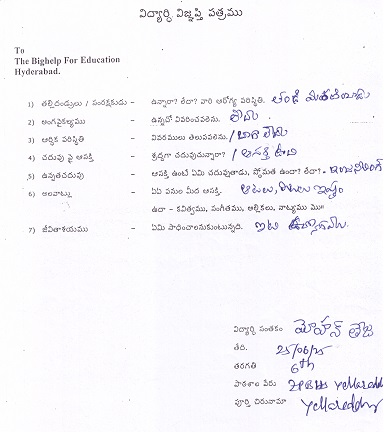 విద్యార్ధి విజ్ఞప్తి పత్రము
To
The Bighelp For Education
Hyderabad.
1) తల్లిదండ్రులు / సంరక్షకుడు - ఉన్నారా? లేదా? వారి ఆరోగ్య పరిస్థితి. తండ్రి
2) అంగవైకల్యము - ఉన్నచో వివరించవలెను. లేదు
3) ఆర్ధిక పరిస్థితి - వివరములు తెలుపవలెను. / బాగ లేదు
4) చదువు పై ఆసక్తి - శ్రద్ధగా చదువుచున్నారా? / ఆసక్తి ఉంది
5) ఉన్నతచదువు - ఆసక్తి ఉంటే ఏమి చదువుతాడు, స్తోమత ఉందా? లేదా? - ఇంజనీరింగ్
6) అలవాట్లు - ఏఏ పనుల మీద ఆసక్తి. ఆటలు, పాటలు ఇష్టం
ఉదా - కవిత్వము, సంగీతము, ఆల్బికలు, నాట్యము మొ॥
7) జీవితాశయము - ఏమి సాధించాలనుకుంటున్నది.
విద్యార్ధి సంతకం మోహన్ తేజ
తేది. 25/06/15
తరగతి 6th
పాఠశాల పేరు ZPBHS Yellareddy
పూర్తి చిరునామా Yellareddy